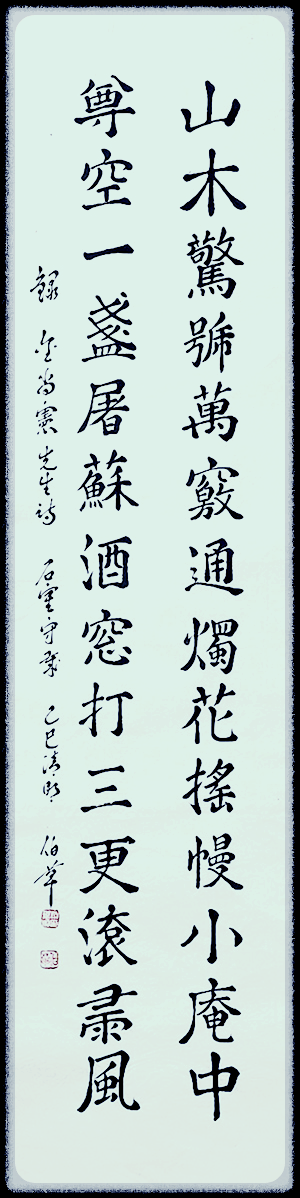 山木驚號萬竅通燭花搖幔小庵中
尊空一盞屠蘇酒窓打三更滾雪風
錄 金尚憲先生詩 石室守歲 乙巳清明 伯華